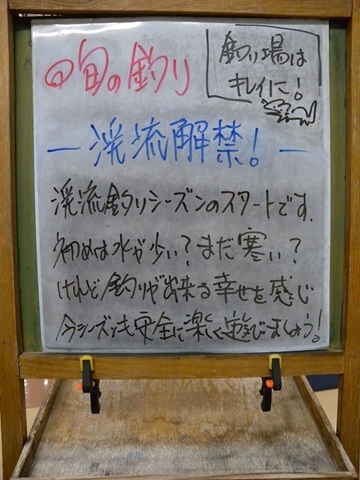 旬の釣り
釣り場は
キレイに!
ー渓流解禁!ー
渓流釣りシーズンのスタートです.
初めは水が少い?まだ寒い?
けれど釣りが出来る幸せを感じ
今シーズンも安全に楽しく遊びましょう!